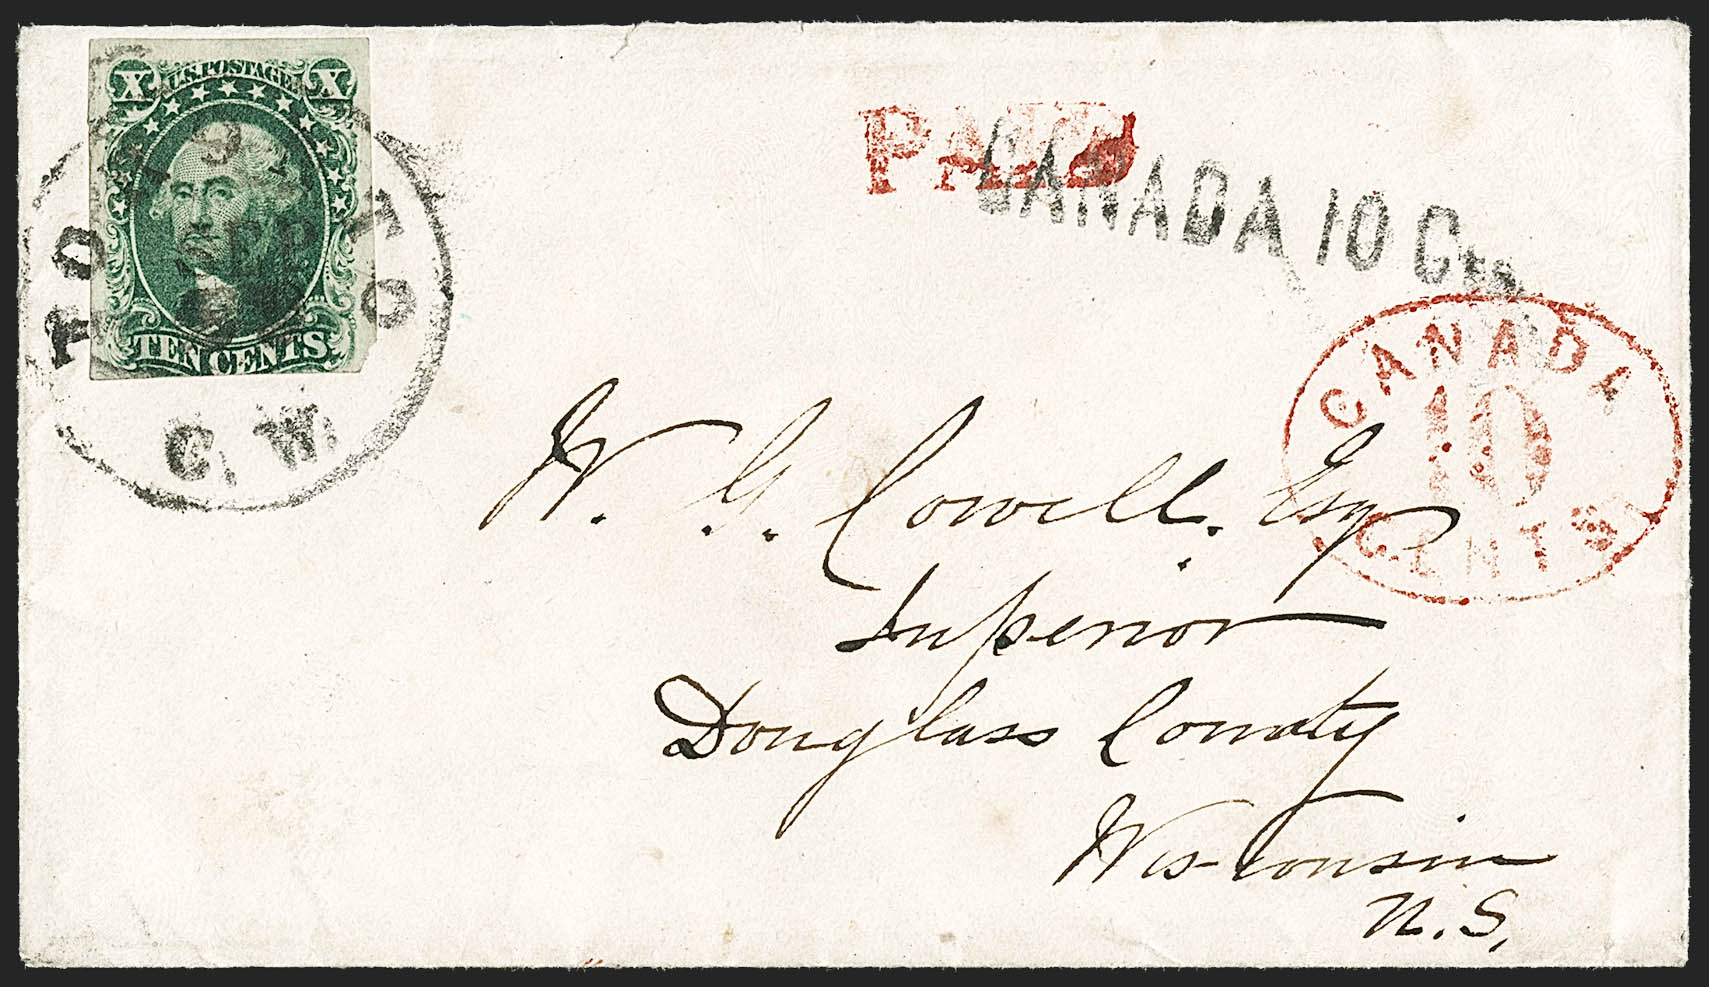 X U.S. POSTAGE X
TEN CENTS
TORONTO
SEP
C.W.
PAID
CANADA 10 Cts
CANADA
10
CENTS
W. G. Cowell. Esq
Superior
Douglass County
Wisconsin
U.S.